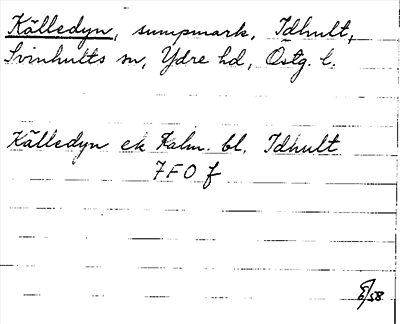 Källedyn, sumpmark, Idhult,
Svinhults sn, Ydre hd, Östg. l.
Källedyn ek Kalm. bl. Idhult
7F0 f
6/58